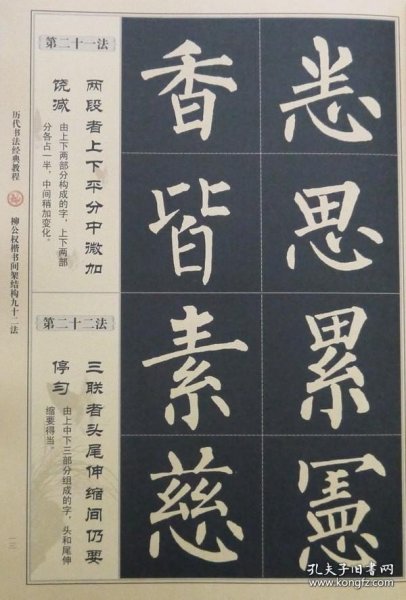 历代书法经典教程
柳公权楷书间架结构九十二法
一三
第二十一法
两段者上下平分中微加
饶减
由上下两部分构成的字,上下两部
分各占一半,中间稍加变化。
恙思
香皆
第二十二法
三联者头尾伸缩间仍要
停匀
由上中下三部分组成的字,头和尾伸
缩要得当。
累宪
素慈
孔夫子旧书网
www.kongfz.com